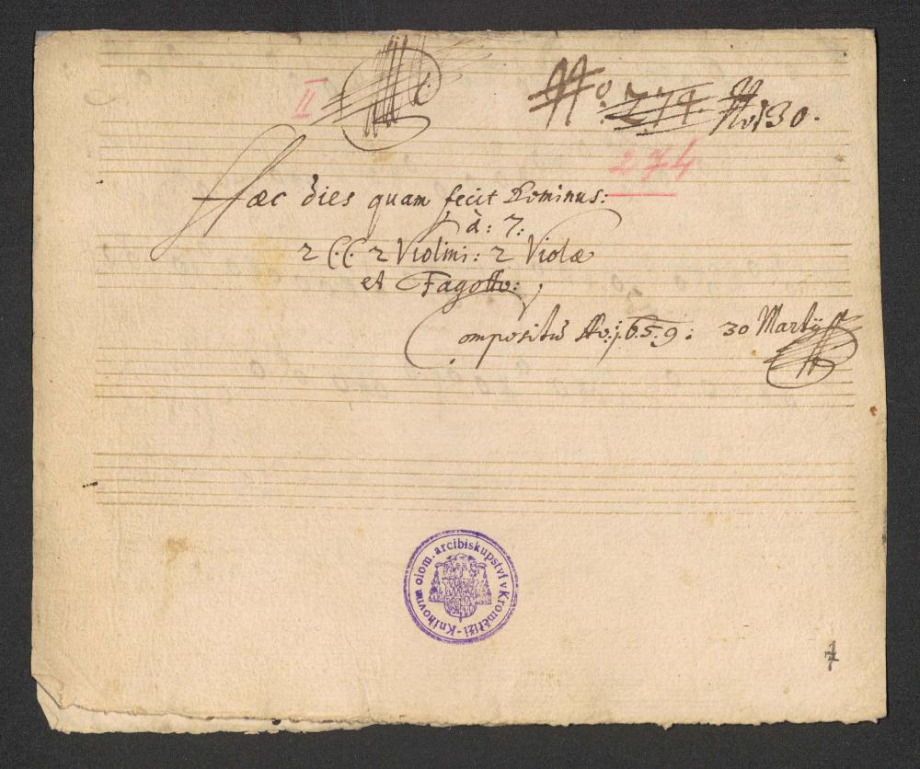 II
No. 274. No 130.
274
Hæc dies quam fecit Dominus:
à: 7:
2 C.C. 2 Violini: 2 Violæ
et Fagotto:
Compositū Ao: 1.6.5.9: 30 Martÿ
Knihovna olom. arcibiskupství v Kroměříži